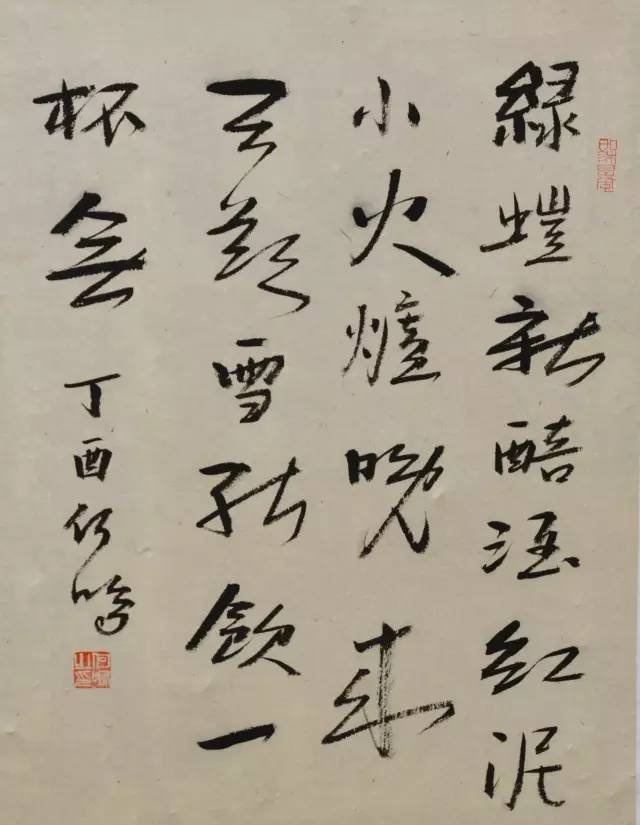 綠螘新醅酒紅泥
小火爐晚來
天欲雪能飲一
杯無
丁酉何